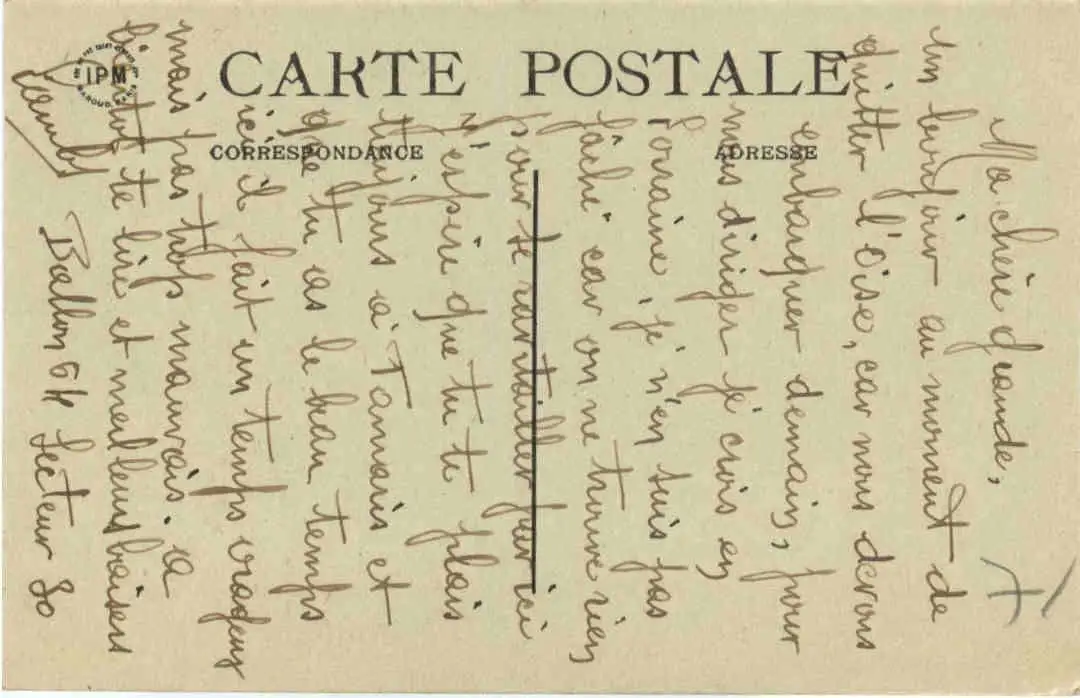 CARTE POSTALE
CORRESPONDANCE
ADRESSE
IPM
Ma chère grande,
un bonjour au moment de
quitter l'Oise, car nous devons
embarquer demain, pour
nous diriger je crois en
Lorraine, je n'en suis pas
fâché car on ne trouve rien
pour se ravitailler par ici
J'espère que tu te plais
toujours à Tamaris et
que tu as le beau temps
ici il fait un temps orageux
mais pas trop mauvais. à
bientôt te lire et meilleurs baisers
Ballon 64 Secteur 80